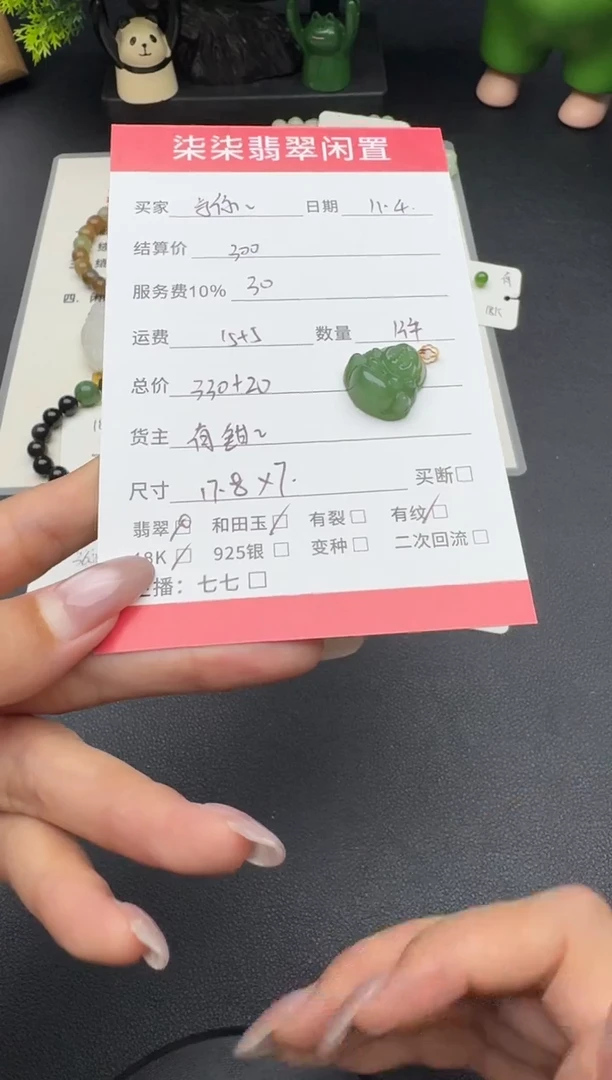 柒柒翡翠闲置
买家 与你~ 日期 11.4.
结算价 300
服务费10% 30
运费 15+5 数量 1件
总价 330+20
货主 有钳~
尺寸 17.8×7.
买断
翡翠 和田玉 有裂 有纹
18K 925银 变种 二次回流
主播：七七
18K